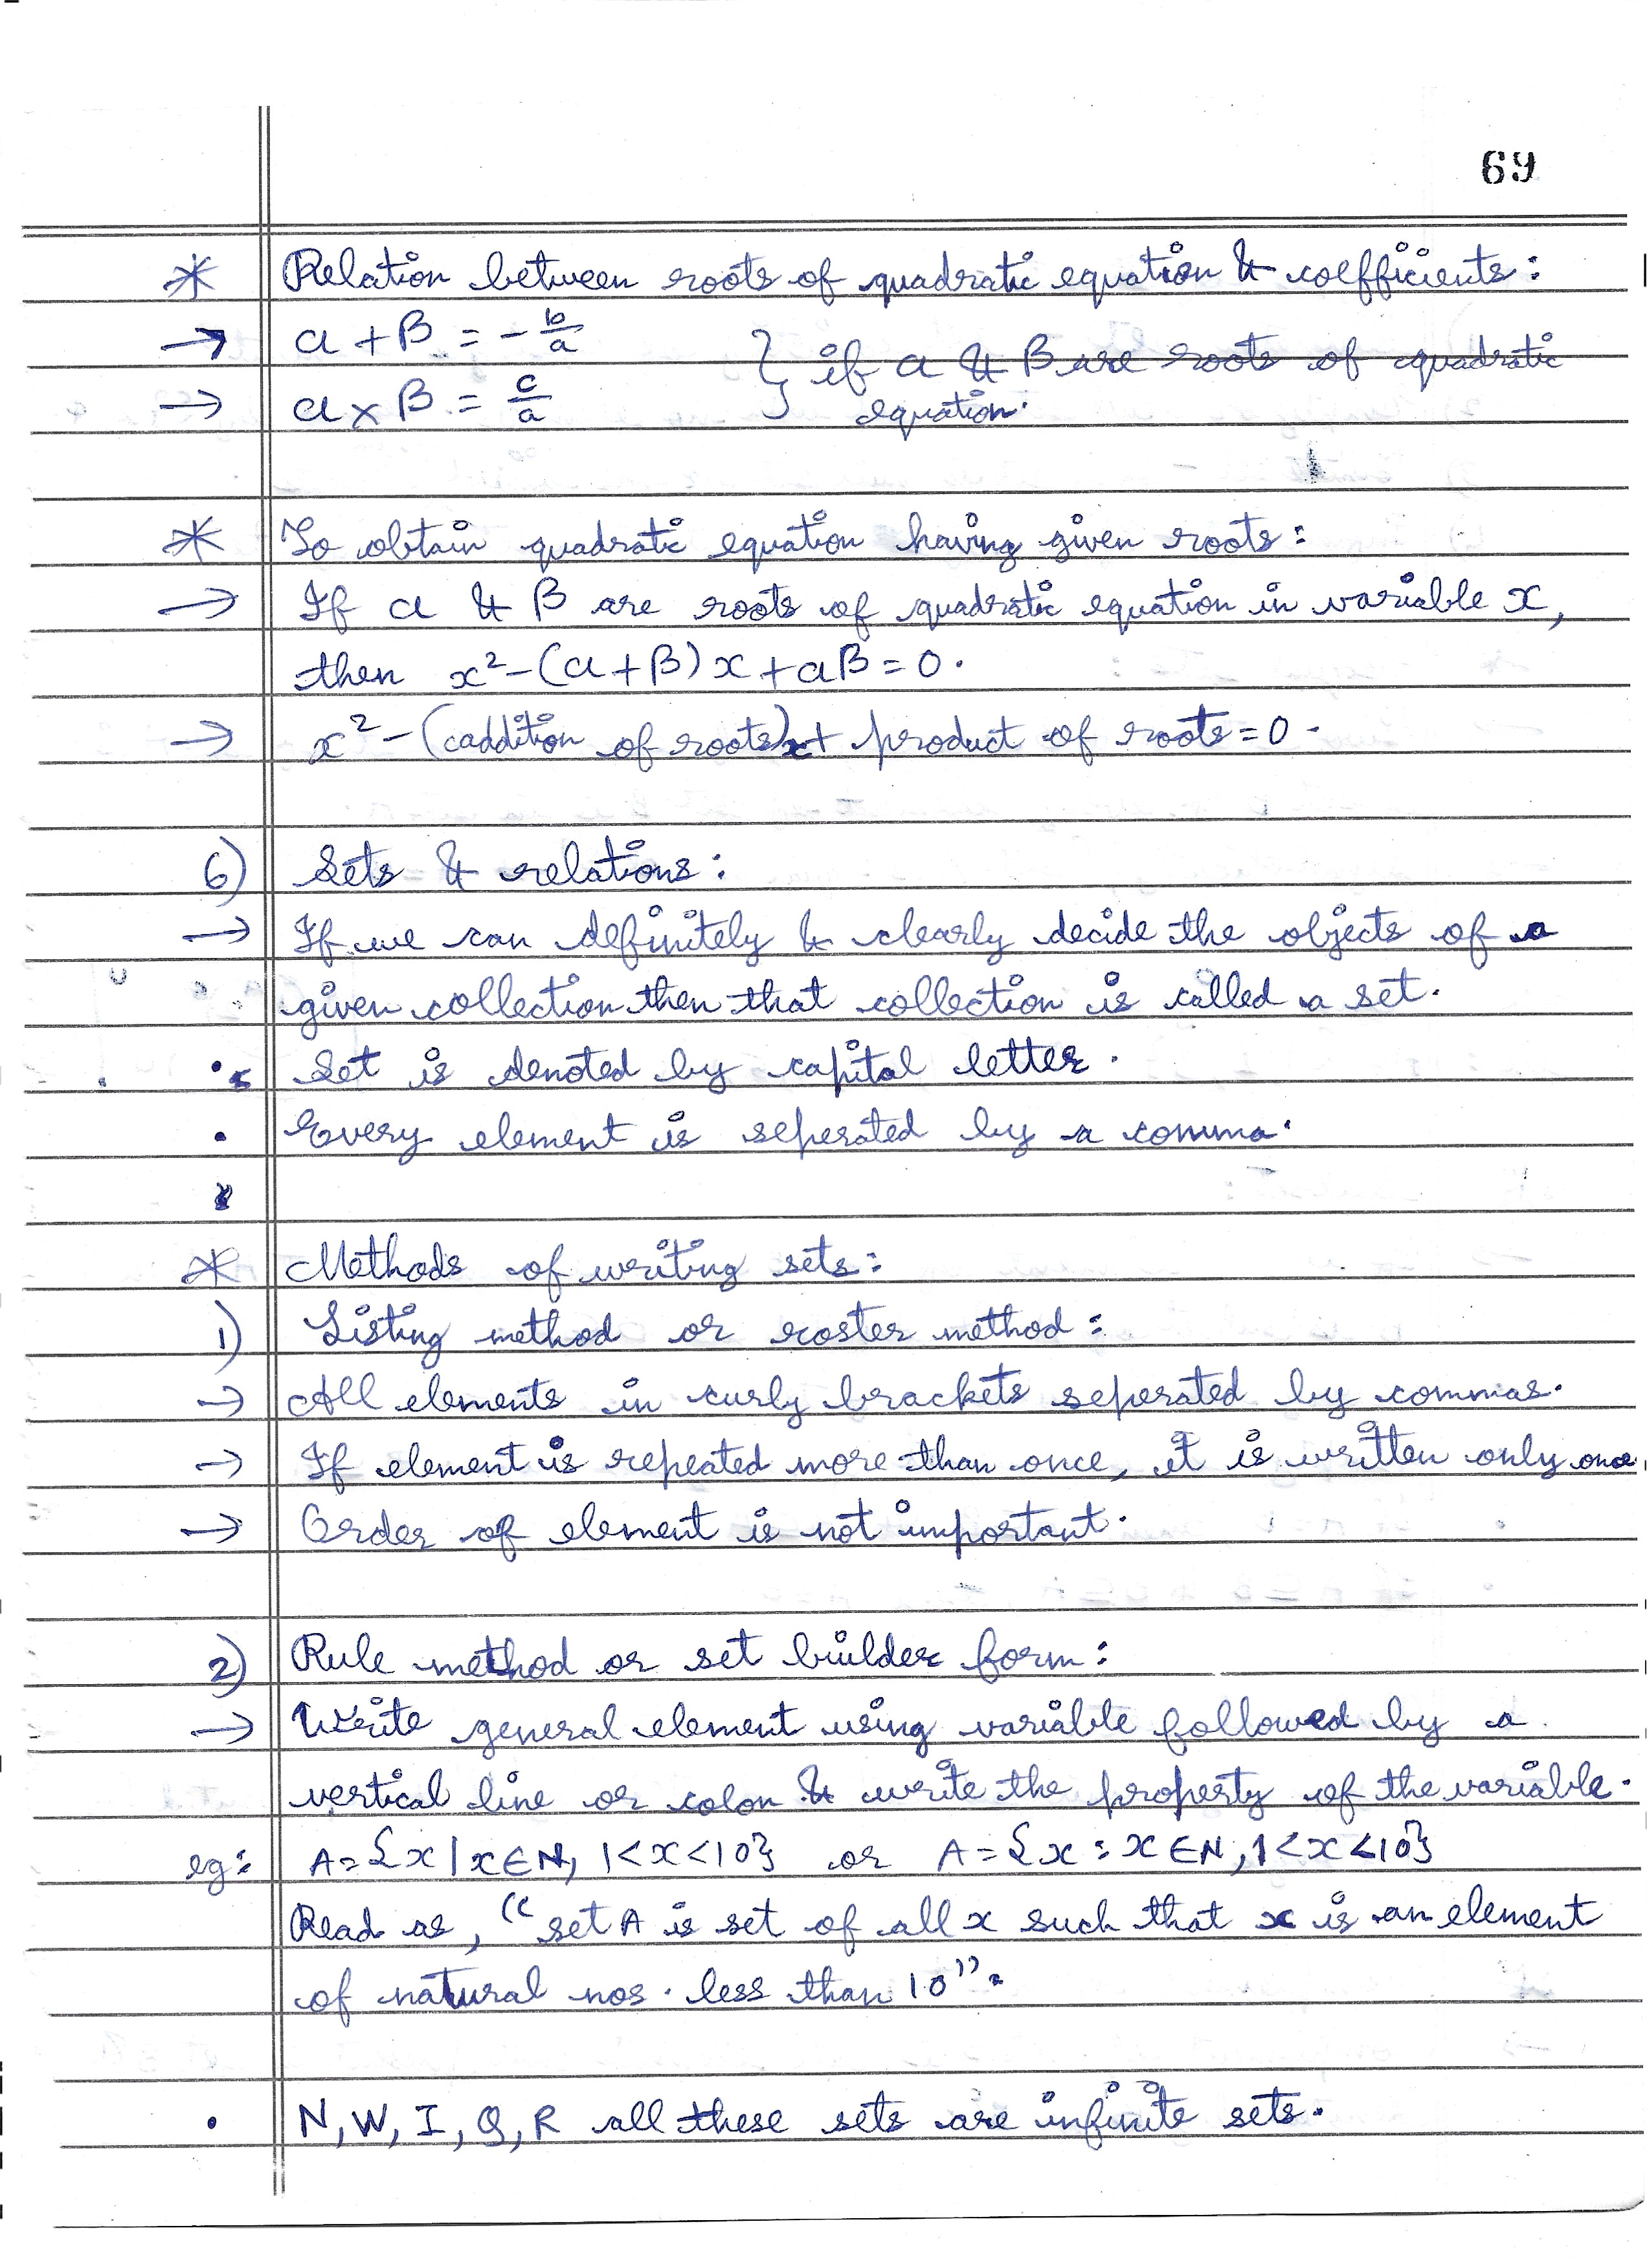 69
* Relation between roots of quadratic equation & coefficients:
→ α + β = - b/a
} if α & β are roots of quadratic
→ α × β = c/a
equation.
* To obtain quadratic equation having given roots:
→ If α & β are roots of quadratic equation in variable x,
then x² - (α + β) x + αβ = 0.
→ x² - (addition of roots)x + product of roots = 0.
6) Sets & relations:
→ If we can definitely & clearly decide the objects of a
given collection then that collection is called a set.
• Set is denoted by capital letter.
• Every element is seperated by a comma.
* Methods of writing sets:
1) Listing method or roster method:
→ All elements in curly brackets seperated by commas.
→ If element is repeated more than once, it is written only once.
→ Order of element is not important.
2) Rule method or set builder form:
→ Write general element using variable followed by a
vertical line or colon & write the property of the variable.
eg: A = {x | x ∈ N, 1 < x < 10} or A = {x : x ∈ N, 1 < x < 10}
Read as, "set A is set of all x such that x is an element
of natural nos. less than 10".
• N, W, I, Q, R all these sets are infinite sets.